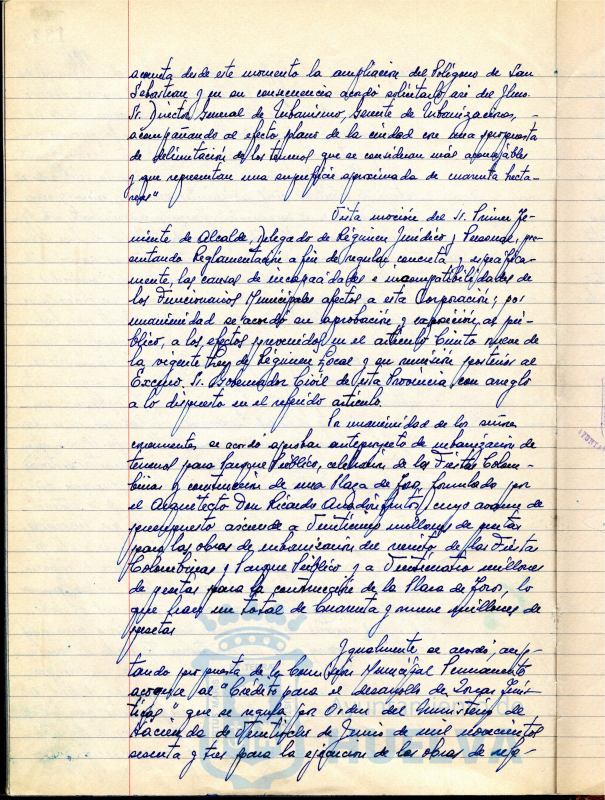 acometa desde este momento la ampliación del Polígono de San
Sebastián y en su consecuencia acordó solicitarlo así del Ilmo.
Sr. Director General de Urbanismo, Gerente de Urbanizaciones, -
acompañando al efecto plano de la ciudad con una propuesta
de delimitación de los terrenos que se consideran más aconsejables
y que representan una superficie aproximada de cuarenta hectá-
reas"
Vista moción del Sr. Primer Te-
niente de Alcalde, Delegado de Régimen Jurídico y Personal, pre-
sentando Reglamentación a fin de regular concreta y específica-
mente, las causas de incapacidades e incompatibilidades de
los Funcionarios Municipales afectos a esta Corporación; por
unanimidad se acordó su aprobación y exposición al pú-
blico, a los efectos prevenidos en el artículo Ciento nueve de
la vigente Ley de Régimen Local y su remisión posterior al
Excmo. Sr. Gobernador Civil de esta Provincia con arreglo
a lo dispuesto en el referido artículo.
Por unanimidad de los señores
concurrentes se acordó aprobar anteproyecto de urbanización de
terrenos para Parque Público, celebración de las Fiestas Colom-
binas y construcción de una Plaza de Toros, formulado por
el Arquitecto Don Ricardo Anadón Frutos, cuyo avance de
presupuesto asciende a Veinticinco millones de pesetas
para las obras de urbanización del recinto de las Fiestas
Colombinas y Parque Público y a Veinticuatro millones
de pesetas para la construcción de la Plaza de Toros, lo
que hace un total de Cuarenta y nueve millones de
pesetas
Igualmente se acordó, acep-
tando propuesta de la Comisión Municipal Permanente
acogerse al "Crédito para el desarrollo de Zonas Turís-
ticas" que se regula por Orden del Ministerio de
Hacienda de Veintiocho de Junio de mil novecientos
sesenta y tres para la ejecución de las obras de refe-